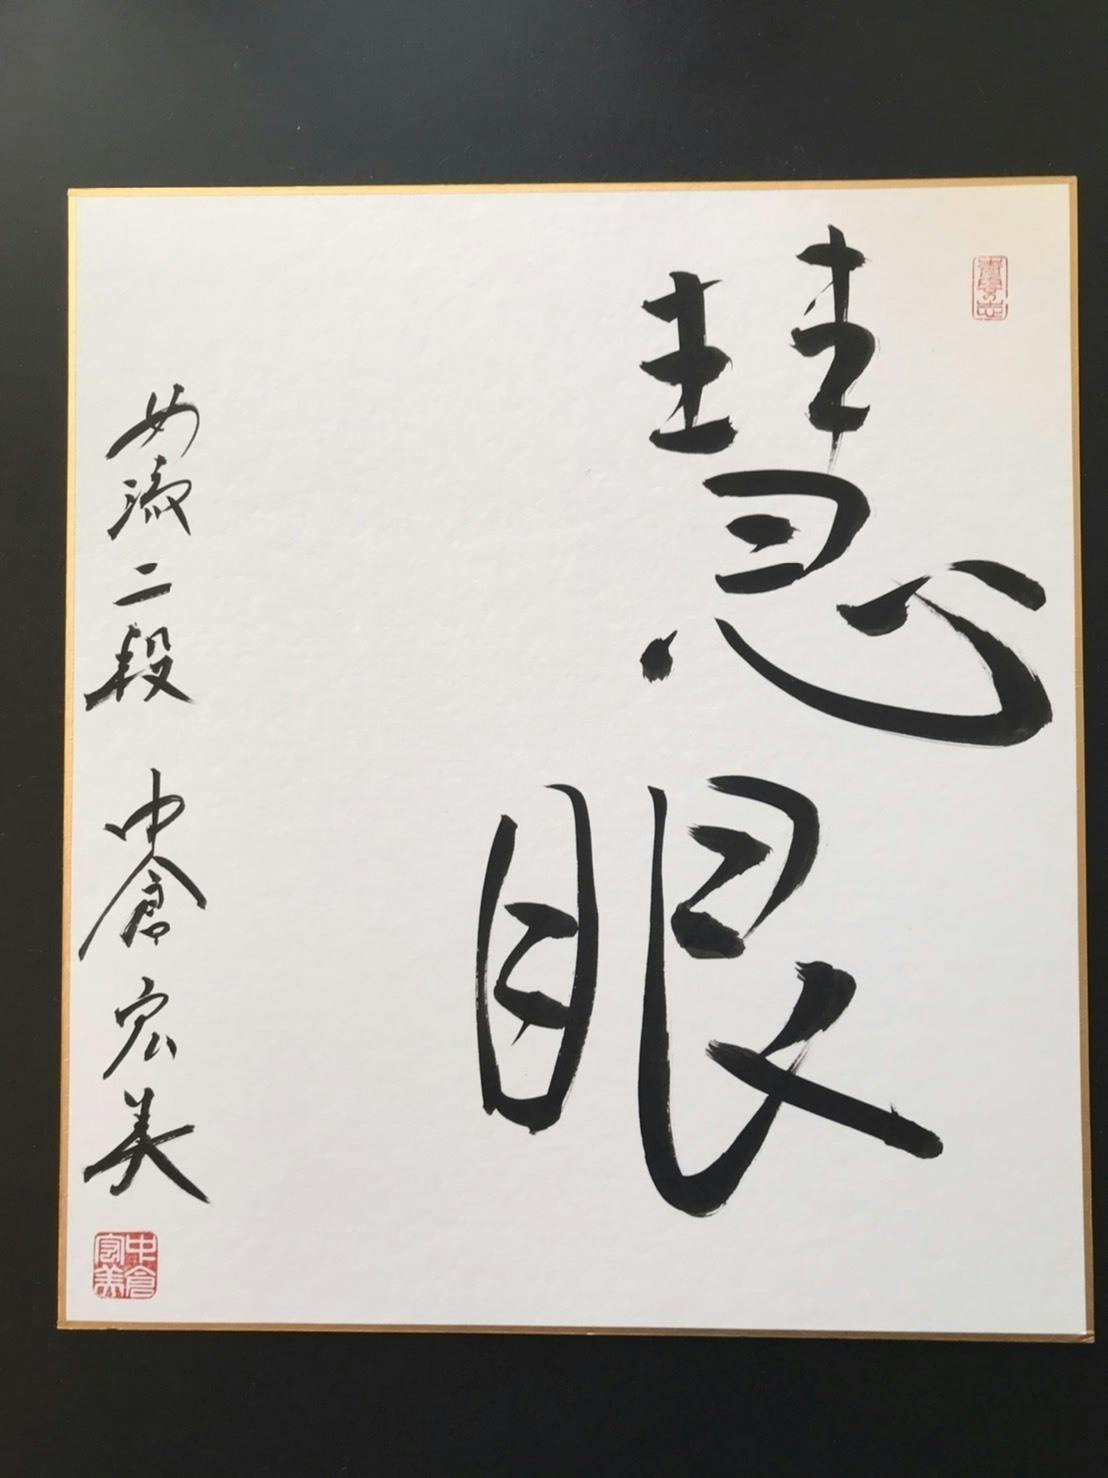 慧眼
女流二段 中倉宏美
中倉宏美